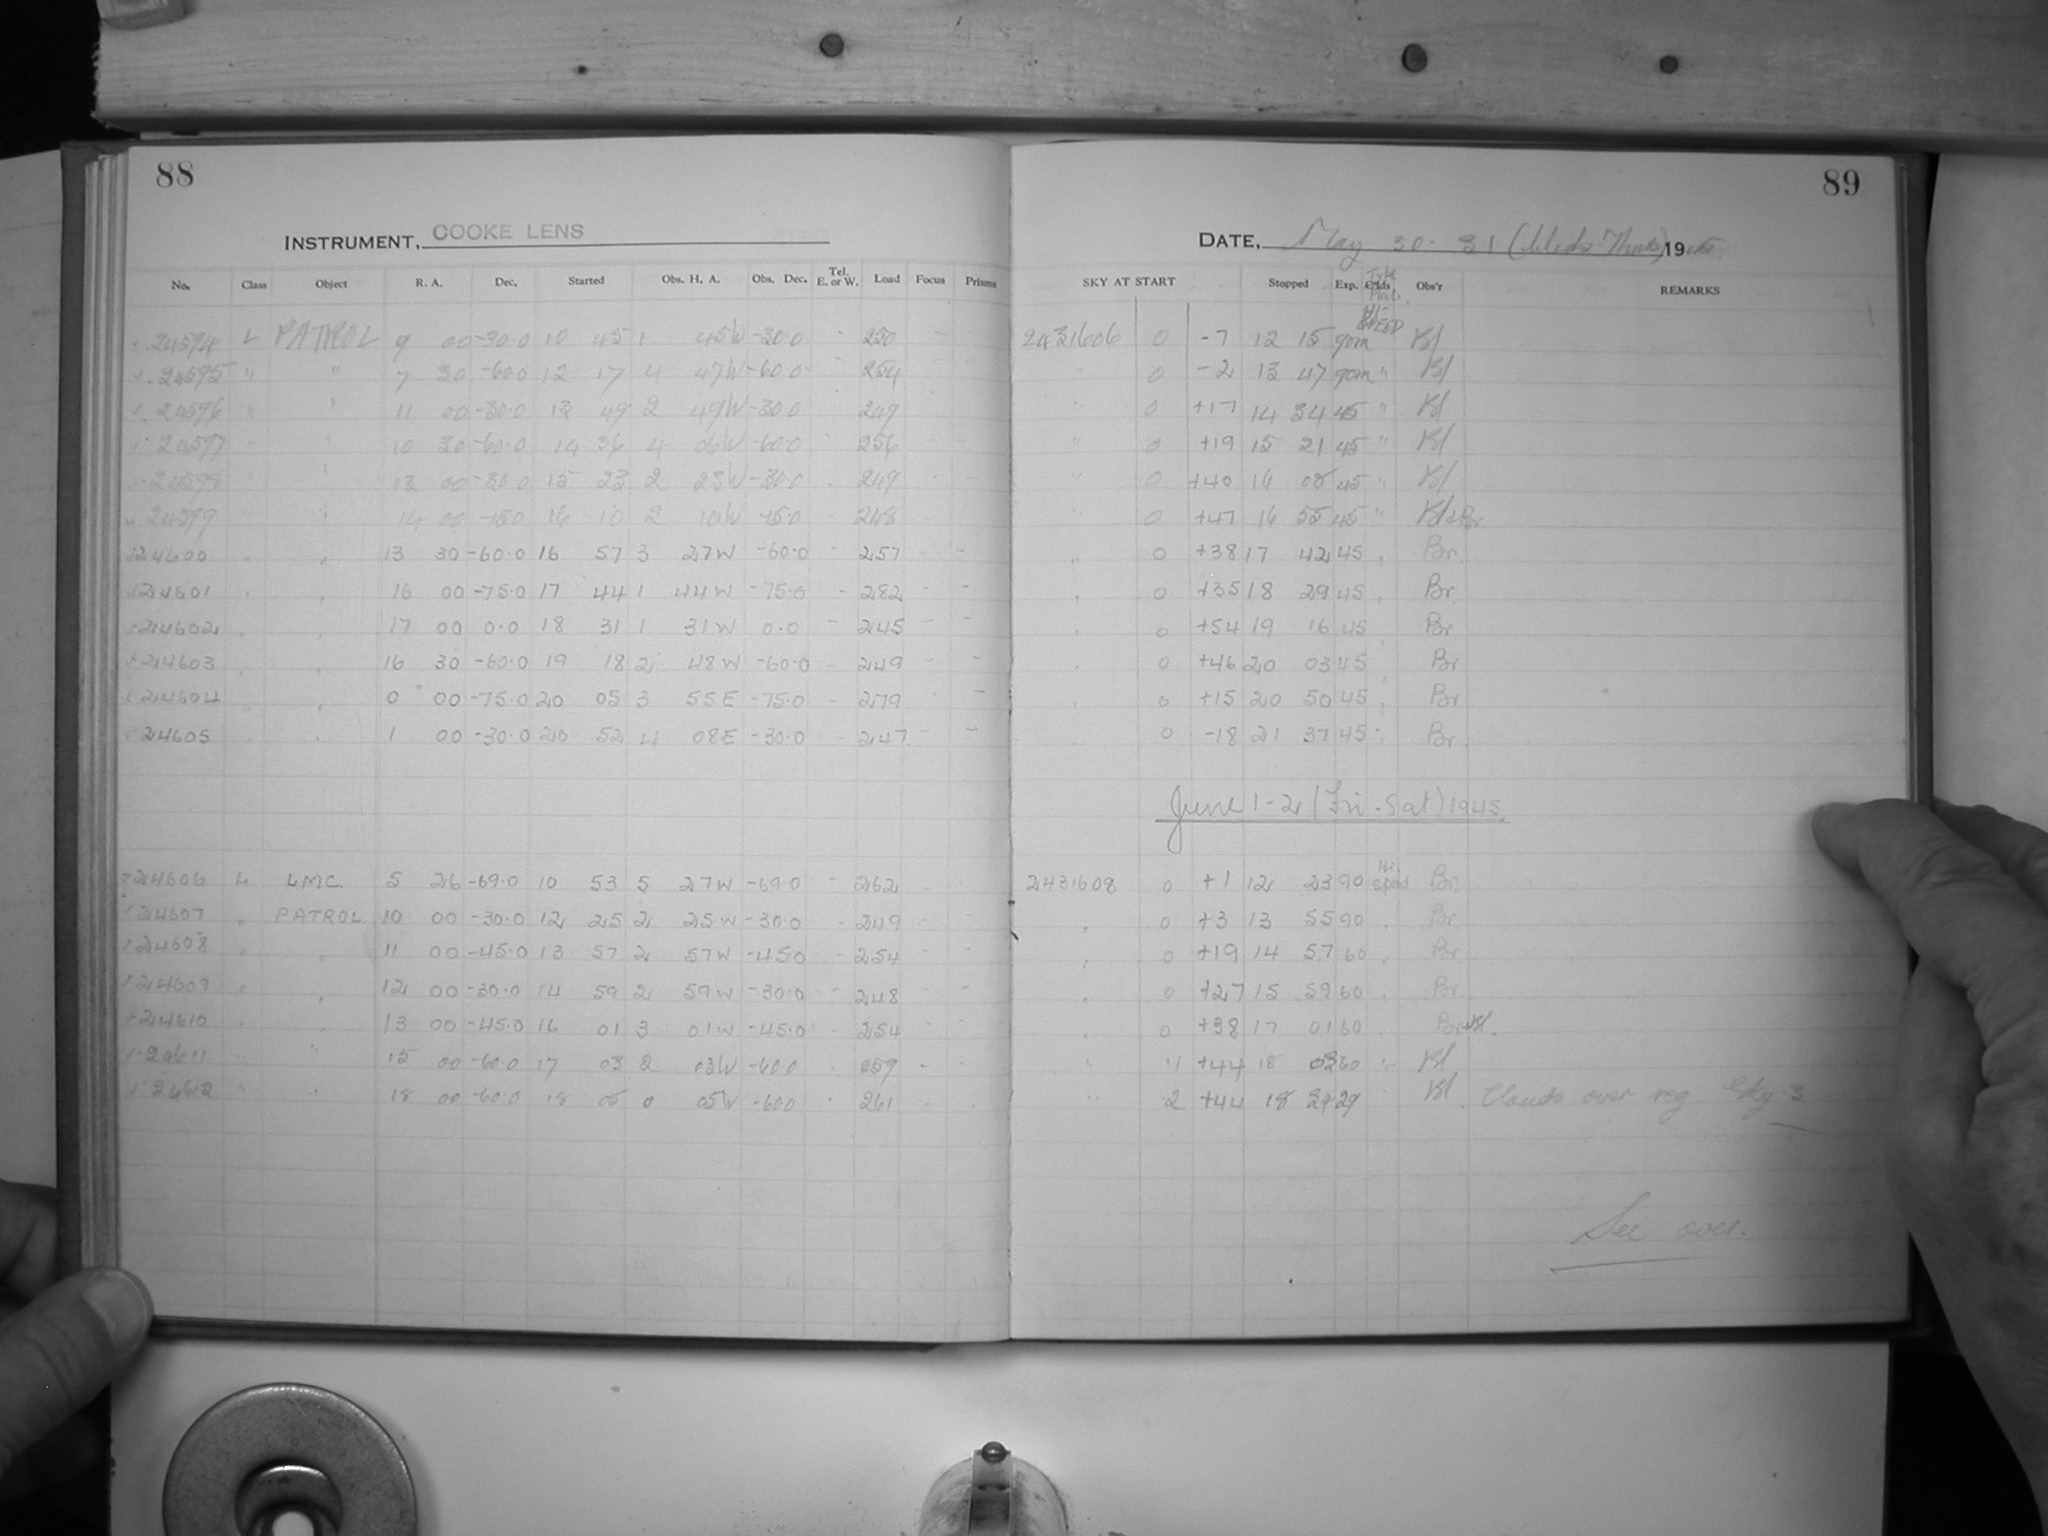 88
INSTRUMENT, COOKE LENS
No. Class Object R. A. Dec. Started Obs. H. A. Obs. Dec. Tel. E. or W. Load Focus Prisms
24594 L PATROL 9 00 -30.0 10 45 1 45W -30.0 - 250 - -
24595 " " 7 30 -60.0 12 17 4 47W -60.0 - 254 - -
24596 " " 11 00 -30.0 13 49 2 49W -30.0 - 249 - -
24597 " " 10 30 -60.0 14 36 4 06W -60.0 - 256 - -
24598 " " 13 00 -30.0 15 23 2 23W -30.0 - 249 - -
24599 " " 14 00 -15.0 16 10 2 10W -15.0 - 248 - -
24600 " " 13 30 -60.0 16 57 3 27W -60.0 - 257 - -
24601 " " 16 00 -75.0 17 44 1 44W -75.0 - 282 - -
24602 " " 17 00 0.0 18 31 1 31W 0.0 - 245 - -
24603 " " 16 30 -60.0 19 18 2 48W -60.0 - 249 - -
24604 " 0 00 -75.0 20 05 3 55E -75.0 - 279 - -
24605 " " 1 00 -30.0 20 52 4 08E -30.0 - 247 - -
24606 L LMC 5 26 -69.0 10 53 5 27W -69.0 - 262 -
24607 " PATROL 10 00 -30.0 12 25 2 25W -30.0 - 249 - -
24608 " " 11 00 -45.0 13 57 2 57W -45.0 - 254 - -
24609 " " 12 00 -30.0 14 59 2 59W -30.0 - 248 - -
24610 " " 13 00 -45.0 16 01 3 01W -45.0 - 254 - -
24611 " " 15 00 -60.0 17 03 2 03W -60.0 - - -
2462 " " 18 00 -60.0 18 05 0 05W -60.0 - 261 - -
89
DATE, May 30-31 (Weds-Thurs) 1945
SKY AT START Stopped Exp. Type Plate Obs'r REMARKS
HI-SPEED
2431606 0 -7 12 15 90m Bl
" 0 -2 13 47 90m " Bl
" 0 +17 14 34 45 " Bl
" 0 +19 15 21 45 " Bl
" 0 +40 16 08 45 " Bl
" 0 +47 16 55 45 " Bl+Br
" 0 +38 17 42 45 " Br
" 0 +35 18 29 45 " Br
" 0 +54 19 16 45 " Br
" 0 +46 20 03 45 " Br
" 0 +15 20 50 45 " Br
0 -18 21 37 45 " Br
June 1-2 (Fri-Sat) 1945.
2431608 0 +1 12 23 90 Hi speed Br
" 0 +3 13 55 90 " Br
" 0 +19 14 57 60 " Br
" 0 +27 15 59 60 " Br
" 0 +38 17 01 60 " Br+Bl.
" 1 +44 18 03 60 " Bl
" 2 +44 18 29 29 " Bl Clouds over reg. Sky-3
See over.